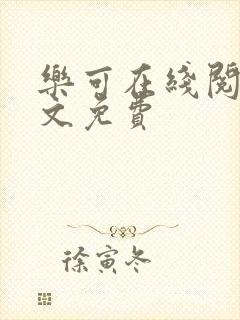 樂可在綫閱
文免費
徐寅冬